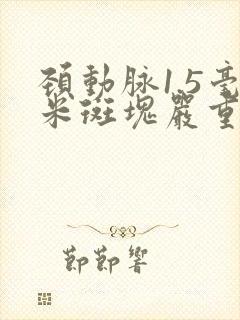 頸動脉1.5毫
米斑塊嚴重
節節響